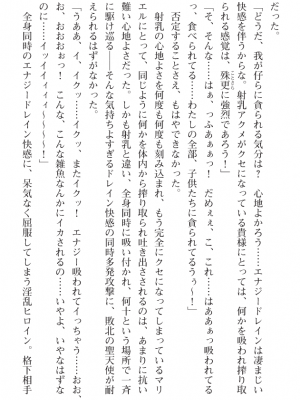 だった。
「どうだ、我が仔らに貪られる気分は？　心地よかろう……エナジードレインは凄まじい
快感を伴うからな。射乳アクメがクセになっている貴様にとっては、何かを吸われ搾り取
られる感覚は、殊更に強烈であろう！」
「そ、そんな……はぁっ、っふあぁぁっ！　だめぇぇ、こ、これ……はああぁっ吸われてる
っ、食べられてる……わたしの全部、子供たちに貪られてるうぅ～！」
否定することさえ、もはやできなかった。
射乳の心地よさを何度も何度も刻み込まれ、もう完全にクセになってしまっているマリ
エルにとって、同じように何かを体内から搾り取られ吐き出されるのは、あまりに抗い
難い心地よさだった。しかも射乳と違い、全身同時に吸い付かれ、何十という場所で一斉
に駆け巡る――そんな気持ちよすぎるドレイン快感の同時多発攻撃に、敗北の聖天使が耐
えられるはずがなかった。
「うああ、イ、イクッ……イクッ、またイクッ！　エナジー吸われてイっちゃう……おお、
お、おおぉぉっ！　こんな、こんな雑魚なんかにイカされるの……いやよ、いやなはずな
のに……イッイイィィィ～～～～！」
全身同時のエナジードレイン快感に、呆気なく屈服してしまう淫乱ヒロイン。格下相手